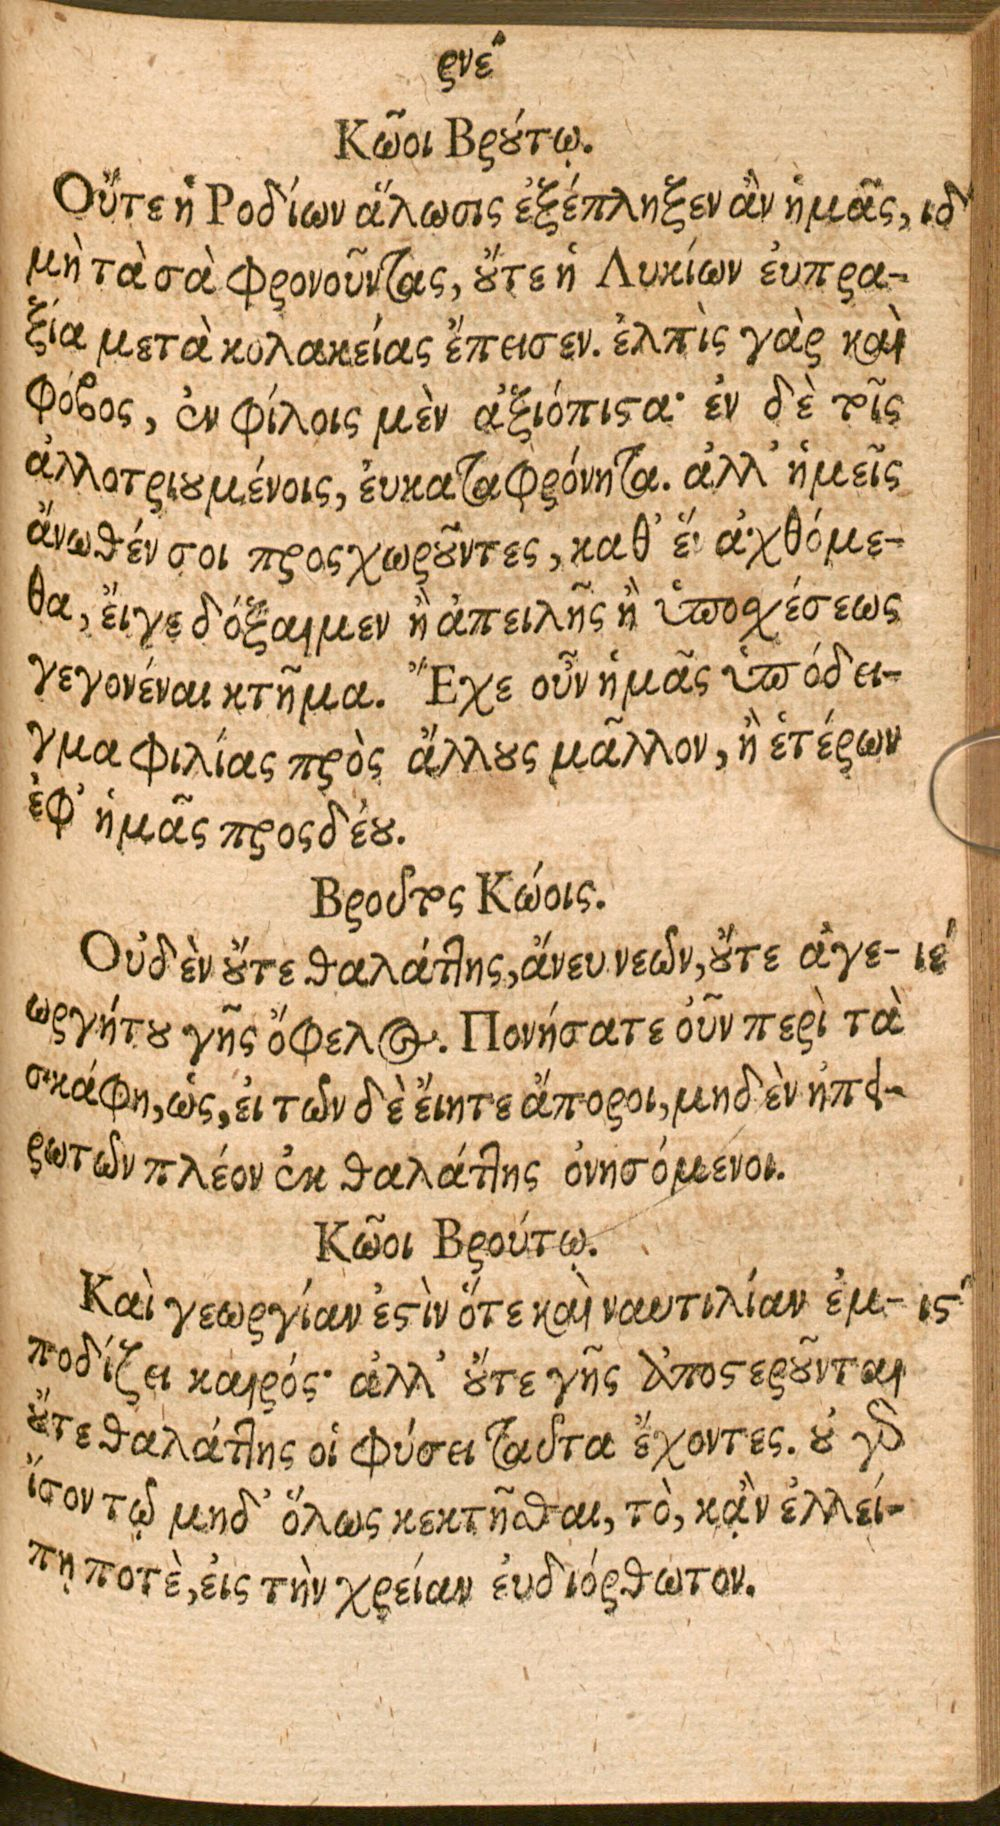 ρνε΄
Κῶοι Βρούτῳ.
Οὔτε ἡ Ροδίων ἅλωσις ἐξέπληξεν ἂν ἡμᾶς, ιδ΄
μὴ τὰ σὰ φρονοῦντας, οὔτε ἡ Λυκίων ἐυπρα-
ξία μετὰ κολακείας ἔπεισεν. ἐλπὶς γὰρ καὶ
φόβος, ἐν φίλοις μὲν ἀξιόπιστα· ἐν δὲ τοῖς
ἀλλοτριουμένοις, ἐυκαταφρόνητα. ἀλλ᾽ ἡμεῖς
ἄνωθέν σοι προςχωροῦντες, καθ᾽ ἓν ἀχθόμε-
θα, ἔιγε δόξαιμεν ἢ ἀπειλῆς ἢ ὑποχέσεως
γεγονέναι κτῆμα. Ἔχε οὖν ἡμᾶς ὑπόδει-
γμα φιλίας πρὸς ἄλλους μᾶλλον, ἢ ἑτέρων
ἐφ᾽ ἡμᾶς προςδέου.
Βροῦτος Κώοις.
Οὐδὲν οὔτε θαλάττης, ἄνευ νεῶν, οὔτε ἀγε- ιε΄
ωργήτου γῆς ὄφελος. Πονήσατε οὖν περὶ τὰ
σκάφη, ὡς, ἐι τῶν δὲ ἔιητε ἄποροι, μηδὲν ἠπει-
ρωτῶν πλέον ἐκ θαλάττης ὀνησόμενοι.
Κῶοι Βρούτῳ.
Καὶ γεωργίαν ἐστὶν ὅτε καὶ ναυτιλίαν ἐμ- ις΄
ποδίζει καιρός· ἀλλ᾽ οὔτε γῆς ἀποστεροῦνται
οὔτε θαλάττης οἱ φύσει ταῦτα ἔχοντες. οὐ γὰρ
ἴσον τῷ μηδ᾽ ὅλως κεκτῆσθαι, τὸ, κᾂν ἐλλεί-
πῃ ποτὲ, ἐις τὴν χρείαν ἐυδιόρθωτον.